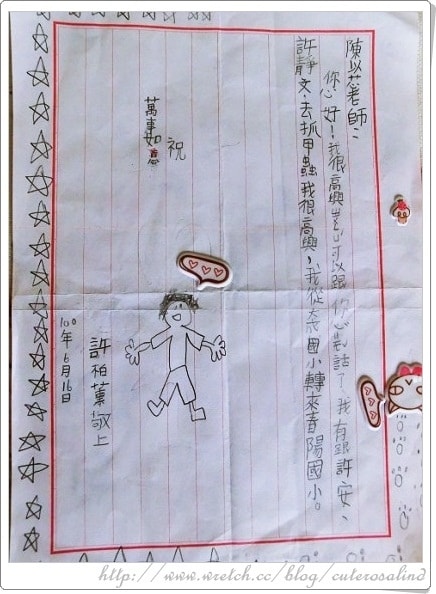 陳以老師：
您好！我很高興可以跟您對話了，我有跟許安、
許靜文、去抓甲蟲我很高興，我從國小轉來春陽國小。
祝
萬事如意
許柏薰敬上
100年6月16日
http://www.wretch.cc/blog/cuterosalind